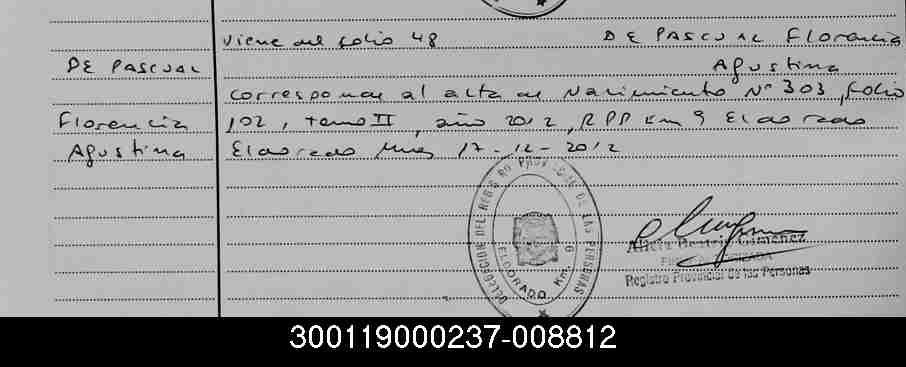 Viene del folio 48 DE PASCUAL Florencia
DE PASCUAL Agustina
corresponde al acta de Nacimiento Nº 303, folio
Florencia 102, tomo II, año 2012, RPP Km 9 Eldorado
Agustina Eldorado Mnes 17-12-2012
DELEGACION DEL REGISTRO PROVINCIAL DE LAS PERSONAS
ELDORADO Km. 9
Alicia Beatriz Giménez
Registro Provincial de las Personas
300119000237-008812